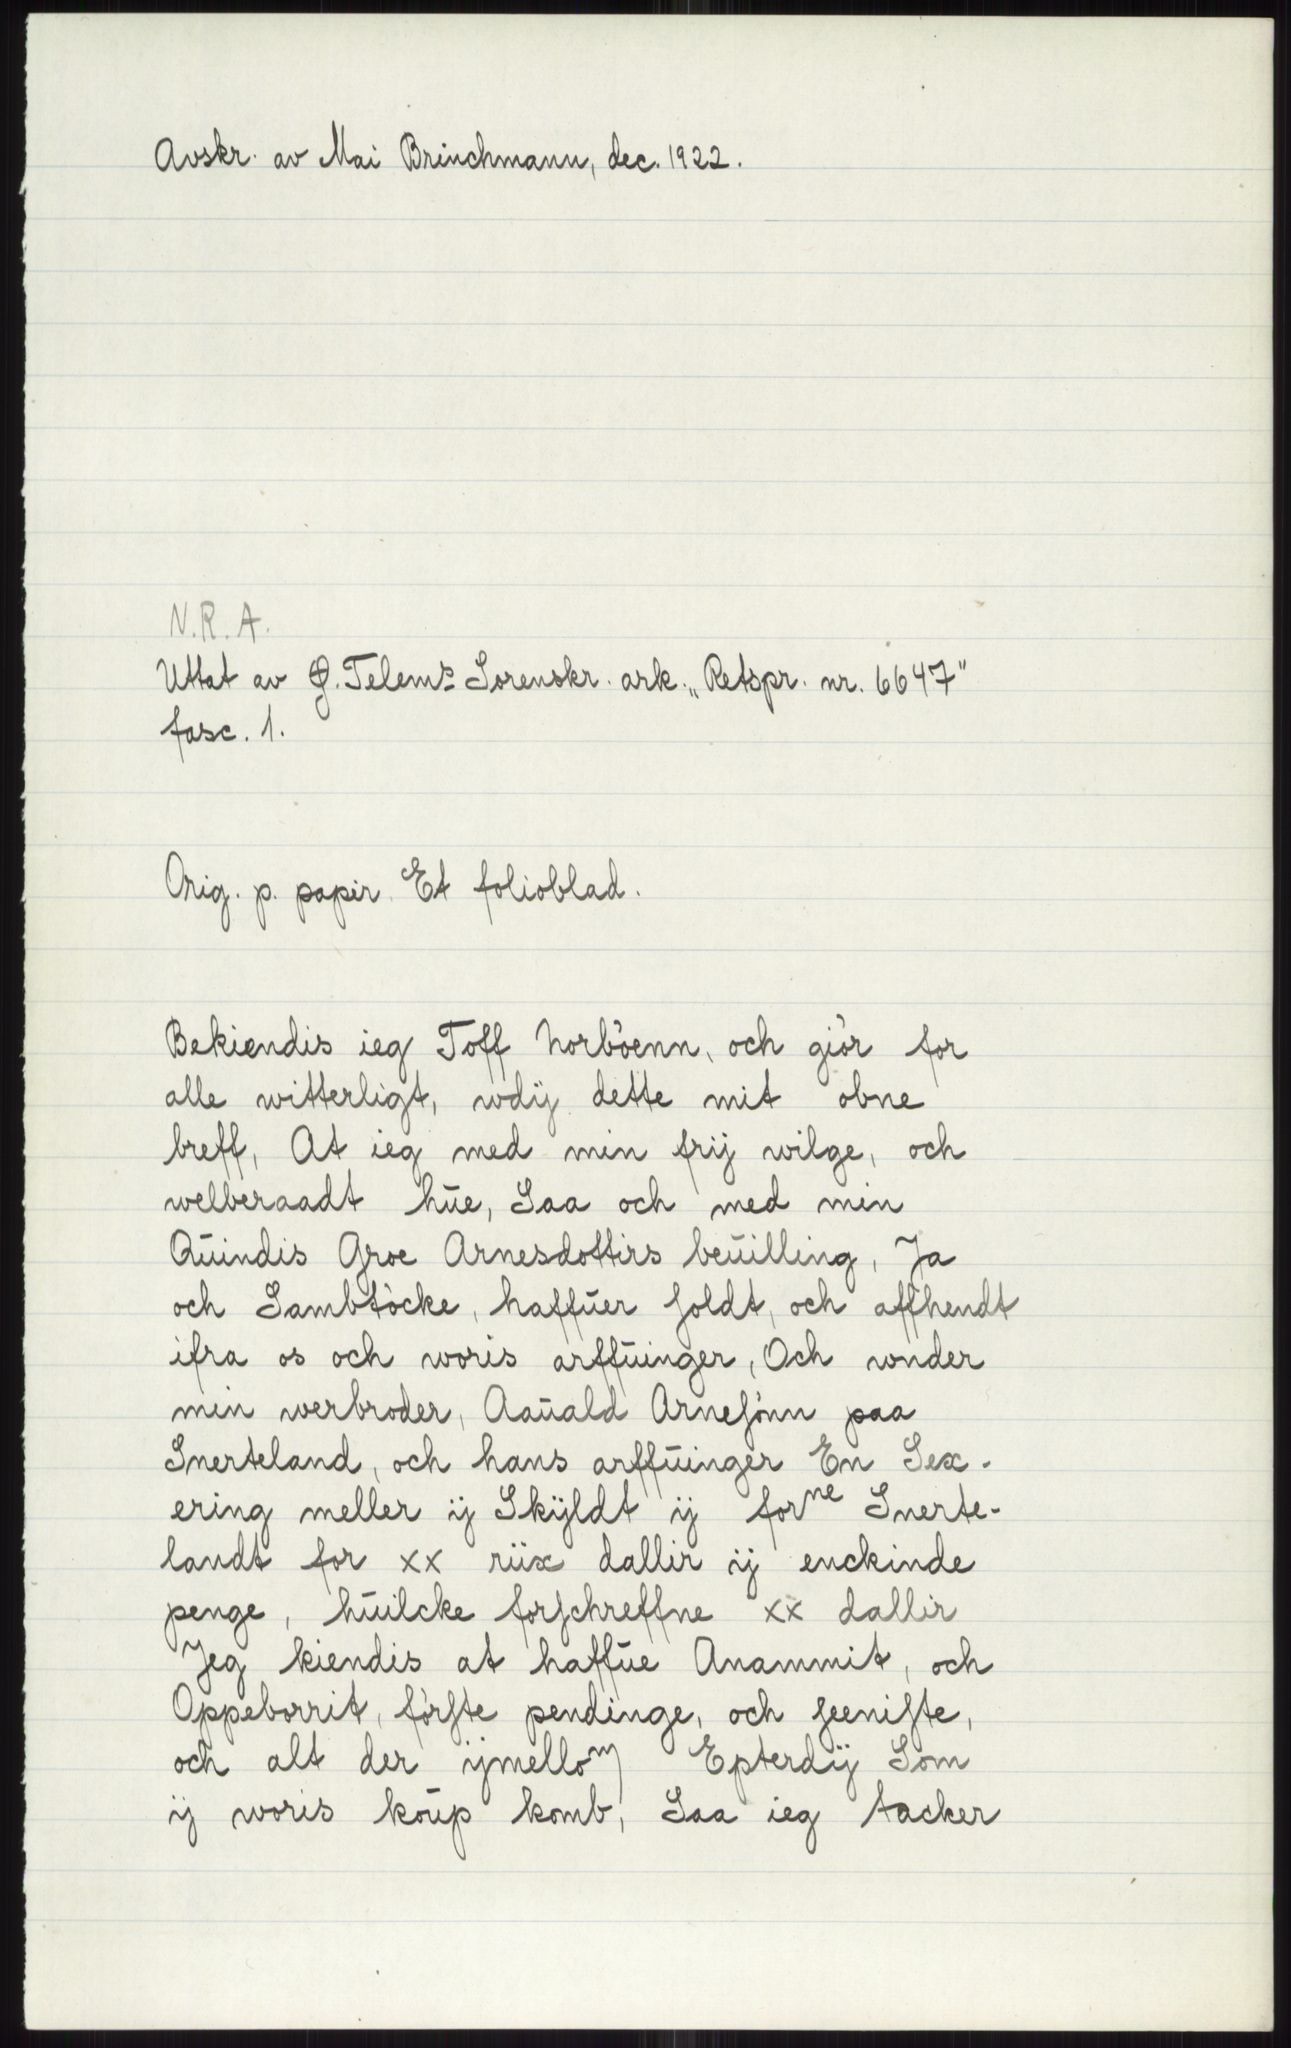 Avskr. av Mai Brinchmann, dec. 1922.
N.R.A.
Uttat av Ø. Telem.s Sorenskr. ark. „Retspr. nr. 6647"
fasc. 1.
Orig. p. papir. Et folioblad.
Bekiendis ieg Toff Norböenn, och giör for
alle witterligt, wdij dette mit obne
breff, At ieg med min frij wilge, och
welberaadt hūe, Saa och med min
Qūindis Groe Arnesdottirs beūilling, Ja
och Sambtöcke, haffūer soldt, och affhendt
ifra os och woris arffūinger, Och wnder
min werbroder, Aaūald Arnesönn paa
Snerteland, och hans arffūinger En Sex-
ering meller ij Skÿldt ij forne Snerte-
landt for xx riix dallir ij enckinde
penge, hūilcke forschreffne xx dallir
Jeg kiendis at haffūe Anammit, och
Oppeborrit, förste pendinge, och seeniste,
och alt der ijmellom Epterdij Som
ij woris koūp komb, Saa ieg tacker